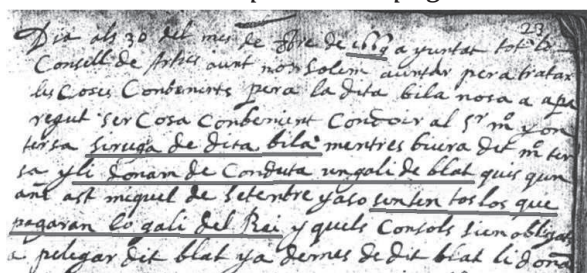 23
Dia als 30 del mes de xbre de 1669 a yuntat tot lo
Consell de Arties aunt non solem auntar pera tratar
les Coses Conbenients pera la dita bila nosa a apa
regut ser Cosa Conbenient Condoir al Sr mo yon
tersa siruga de dita bila mentres biura det mo ter
sa y li donam de Conduta un gali de blat quis qun
ane ast miquel de setenbre yaso senten tos los que
pagaran lo gali del Rei y quels Consols sien obligats
a pelegar dit blat ya dernes de dit blat li dona